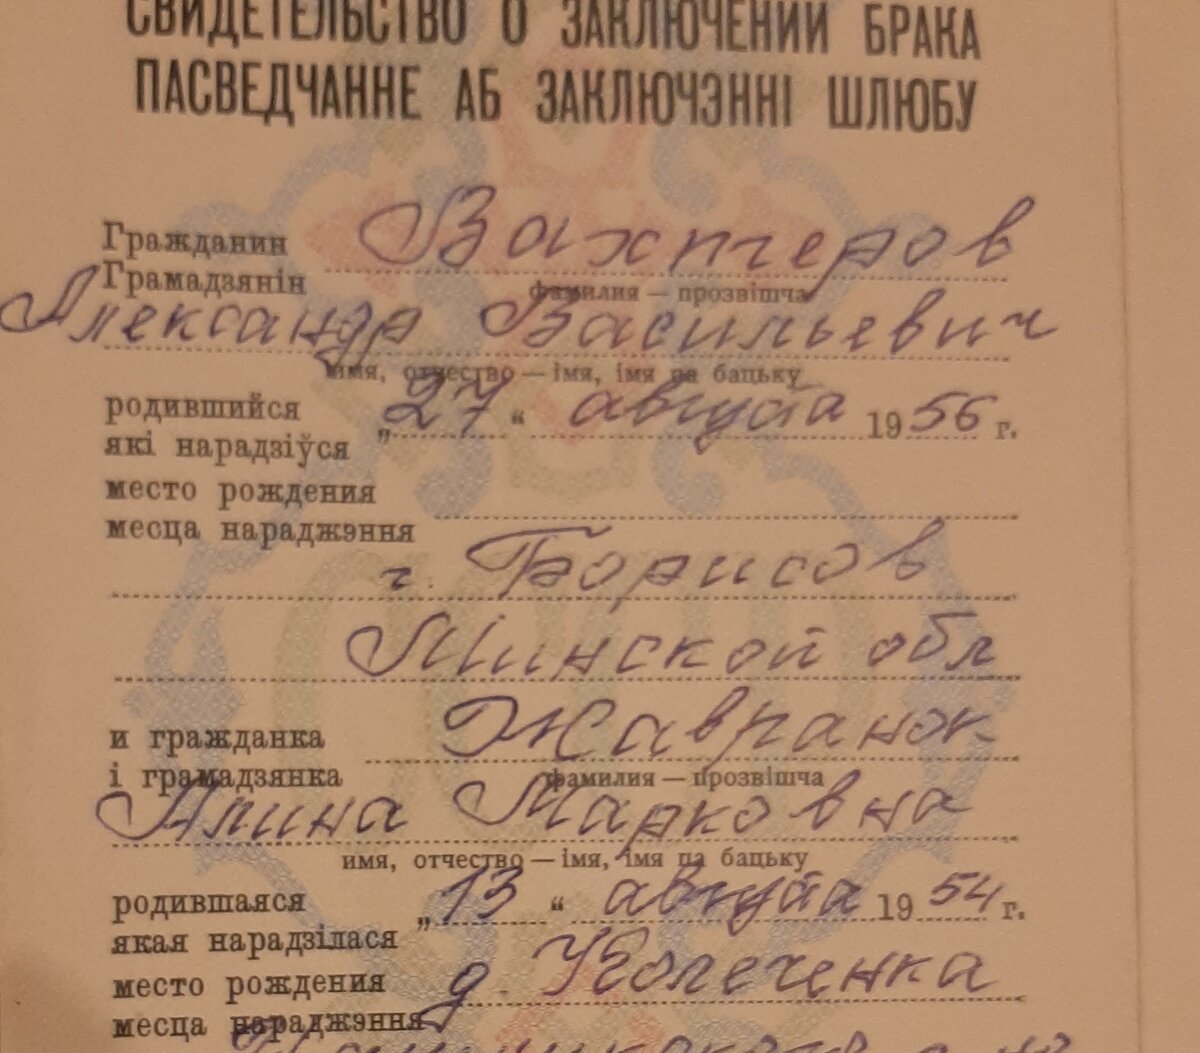 СВИДЕТЕЛЬСТВО О ЗАКЛЮЧЕНИИ БРАКА
ПАСВЕДЧАННЕ АБ ЗАКЛЮЧЭННІ ШЛЮБУ
Гражданин Вахтеров
Грамадзянін
фамилия — прозвішча
Александр Васильевич
имя, отчество — імя, імя па бацьку
родившийся „27“ августа 1956 г.
які нарадзіўся
место рождения
месца нараджэння
г. Борисов
Минской обл
и гражданка Жавранок
і грамадзянка
фамилия — прозвішча
Алина Марковна
имя, отчество — імя, імя па бацьку
родившаяся „13“ августа 1954 г.
якая нарадзілася
место рождения д.
месца нараджэння